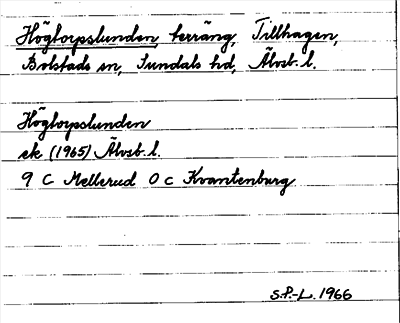 Högtorpslunden, terräng, Tillhagen,
Bolstads sn, Sundals hd, Älvsb. l.
Högtorpslunden
ek (1965) Älvsb. l.
9 C Mellerud 0 c Kvantenburg
S.P.-L. 1966